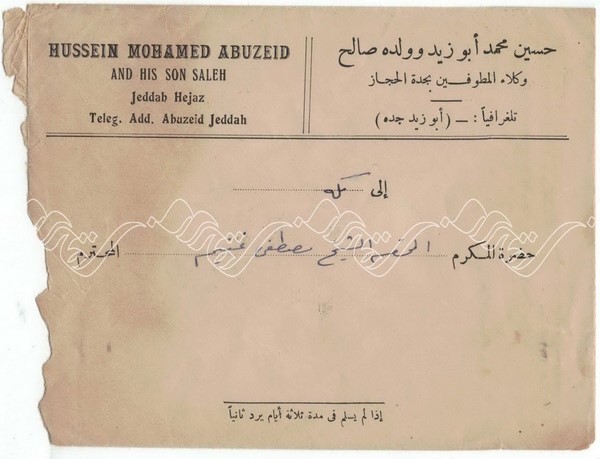 HUSSEIN MOHAMED ABUZEID
AND HIS SON SALEH
Jeddah Hejaz
Teleg. Add. Abuzeid Jeddah
حسين محمد أبو زيد وولده صالح
وكلاء المطوفين بجدة الحجاز
تلغرافياً : ـ ( أبو زيد جده )
إلى مكه
حضرة المكرم الشيخ مصطفى غنيم المحترم
إذا لم يسلم فى مدة ثلاثة أيام يرد ثانياً